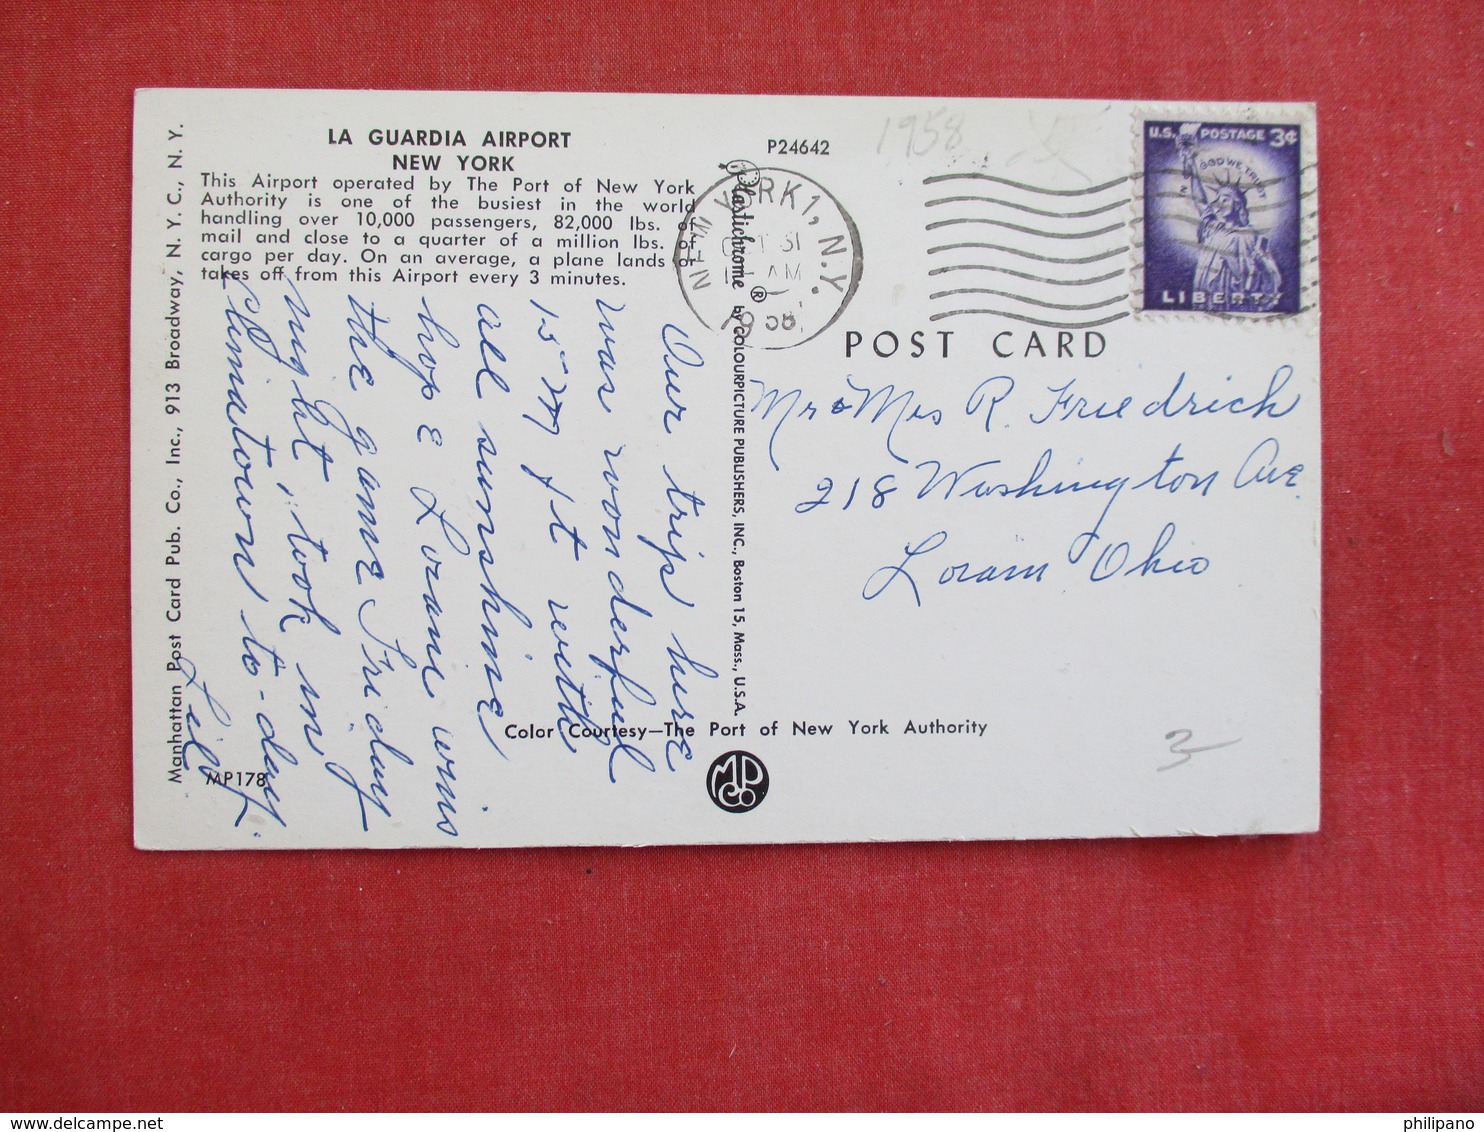 LA GUARDIA AIRPORT
NEW YORK
This Airport operated by The Port of New York
Authority is one of the busiest in the world
handling over 10,000 passengers, 82,000 lbs. of
mail and close to a quarter of a million lbs. of
cargo per day. On an average, a plane lands or
takes off from this Airport every 3 minutes.
Manhattan Post Card Pub. Co., Inc., 913 Broadway, N. Y. C., N. Y.
MP178
Our trip here
was wonderful
15 M ft with
all sunshine
hope Lorane wins
the game Friday
night, took in
Chinatown to-day.
Lil
P24642
Plastichrome ® by COLOURPICTURE PUBLISHERS, INC., Boston 15, Mass., U.S.A.
Color Courtesy—The Port of New York Authority
MP Co
1958
NEW YORK 1, N.Y.
OCT 31
AM
1958
U.S. POSTAGE 3¢
IN GOD WE TRUST
LIBERTY
POST CARD
Mr & Mrs R. Friedrich
218 Washington Ave
Lorain Ohio
3
philipano